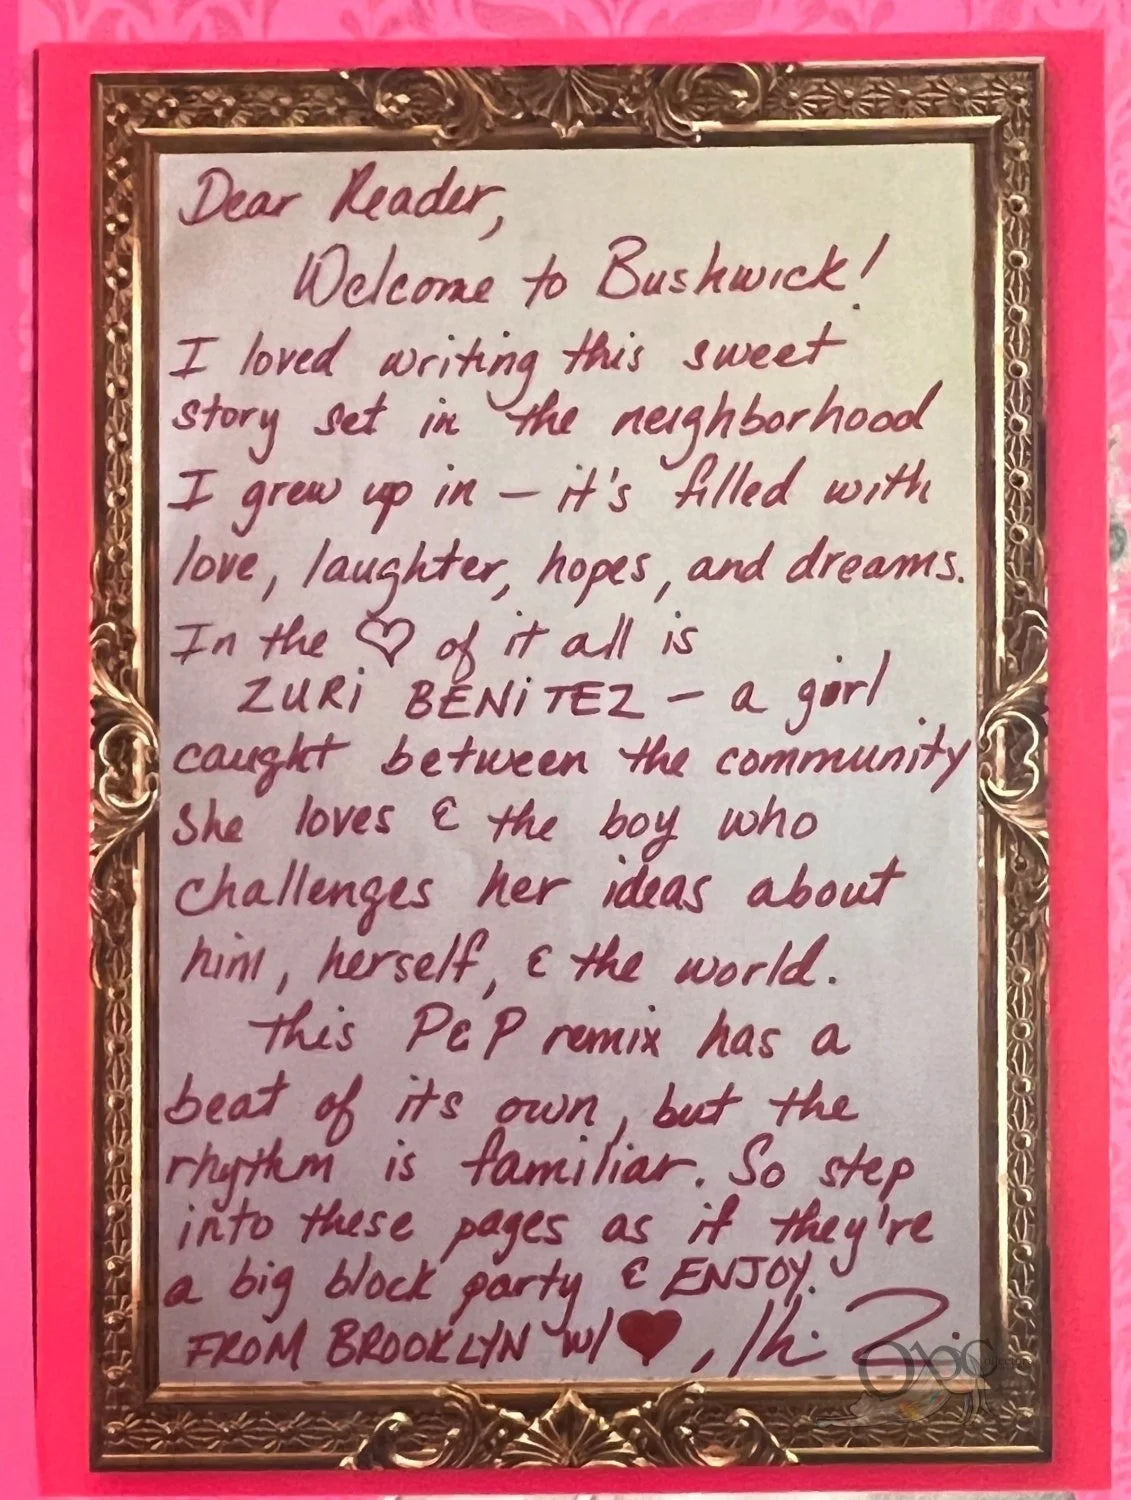 Dear Reader,
Welcome to Bushwick!
I loved writing this sweet
story set in the neighborhood
I grew up in – it's filled with
love, laughter, hopes, and dreams.
In the ♡ of it all is
ZURi BENiTEZ – a girl
caught between the community
She loves & the boy who
challenges her ideas about
him, herself, & the world.
This P&P remix has a
beat of its own, but the
rhythm is familiar. So step
into these pages as if they're
a big block party & ENJOY.
FROM BROOKLYN w/ ♥,